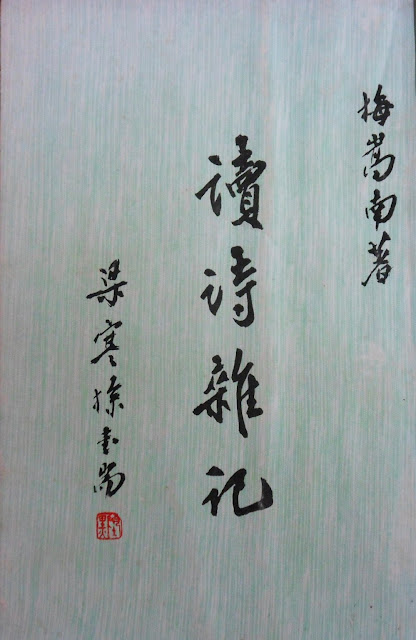 梅嵩南著
讀詩雜記
梁寒操書耑